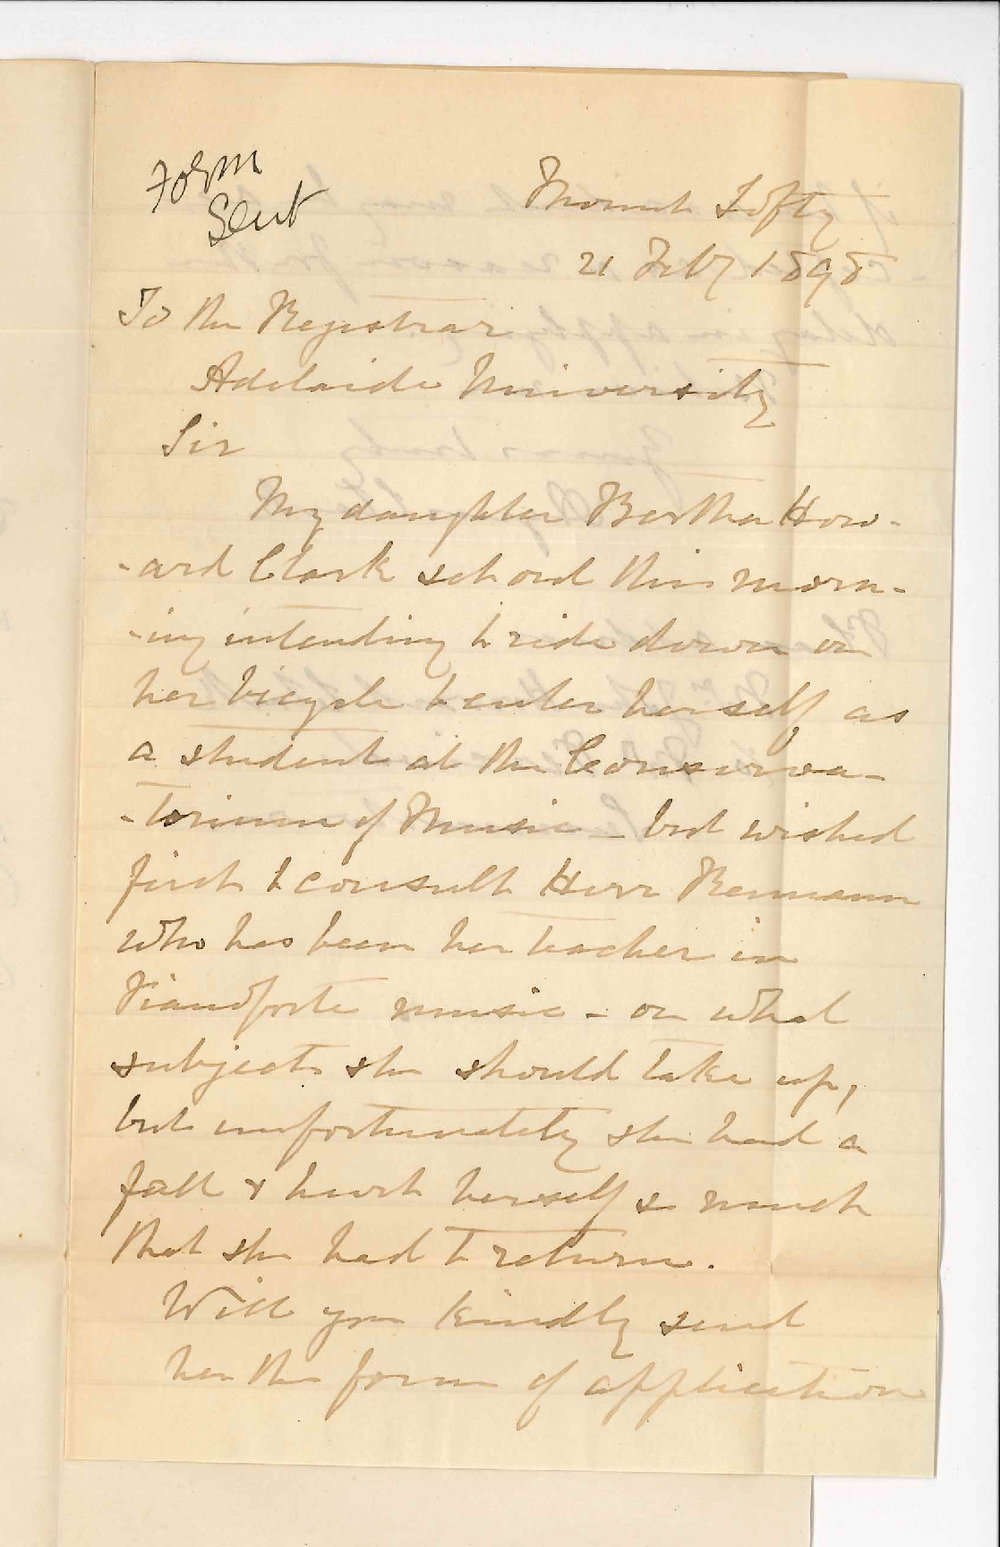 Form
Sent
Mount Lofty
21 Feby 1898
To the Registrar
Adelaide University
Sir
My daughter Bertha How-
-ard Clark set out this morn-
-ing intending to ride down on
her bicycle to enter herself as
a student at the Conserva-
-torium of Music - but wished
first to consult Herr Reimann
who has been her teacher in
Pianoforte music - on what
subjects she should take up,
but unfortunately she had a
fall & hurt herself so much
that she had to return.
Will you kindly send
her the form of application